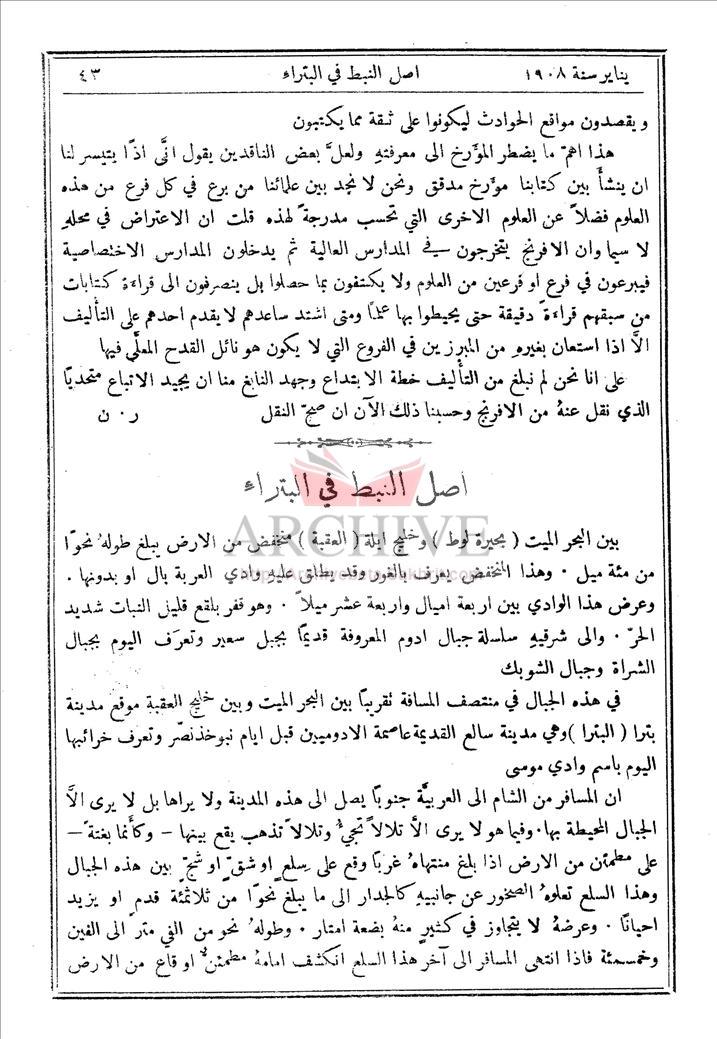 يناير سنة ١٩٠٨ اصل النبط في البتراء ٤٣
و يقصدون مواقع الحوادث ليكونوا على ثقة مما يكتبون
هذا اهمّ ما يضطر المؤرخ الى معرفتهِ ولعلَّ بعض الناقدين يقول انَّى اذًا يتيسر لنا
ان ينشأَ بين كتابنا مؤرخ مدقق ونحن لا نجد بين علمائنا من برع في كل فرع من هذه
العلوم فضلاً عن العلوم الاخرى التي تحسب مدرجةً لهذه قلت ان الاعتراض في محلهِ
لا سيما وان الافرنج يتخرجون في المدارس العالية ثم يدخلون المدارس الاختصاصية
فيبرعون في فرع او فرعين من العلوم ولا يكتفون بما حصلوا بل ينصرفون الى قراءة كتابات
من سبقهم قراءةً دقيقة حتى يحيطوا بها علمًا ومتى اشتد ساعدهم لا يقدم احدهم على التأليف
الاَّ اذا استعان بغيرهِ من المبرزين في الفروع التي لا يكون هو نائل القدح المعلَّى فيها
على انا نحن لم نبلغ من التأليف خطة الابتداع وجهد النابغ منا ان يجيد الاتباع متحديًا
الذي نقل عنهُ من الافرنج وحسبنا ذلك الآن ان صحَّ النقل ر ٠ ن
اصل النبط في البتراء
ARCHIVE
بين البحر الميت ( بحيرة لوط ) وخليج ايلة ( العقبة ) منخفض من الارض يبلغ طولهُ نحوًا
من مئة ميل ٠ وهذا المنخفض يعرف بالغور وقد يطلق عليهِ وادي العربة بال او بدونها ٠
وعرض هذا الوادي بين اربعة اميال واربعة عشر ميلاً ٠ وهو قفر بلقع قليل النبات شديد
الحرّ ٠ والى شرقيهِ سلسلة جبال ادوم المعروفة قديمًا بجبل سعير وتعرَف اليوم بجبال
الشراة وجبال الشوبك
في هذه الجبال في منتصف المسافة تقريبًا بين البحر الميت وبين خليج العقبة موقع مدينة
بترا ( البترا ) وهي مدينة سالع القديمة عاصمة الادوميين قبل ايام نبوخذنصّر وتعرف خرائبها
اليوم باسم وادي موسى
ان المسافر من الشام الى العربيَّة جنوبًا يصل الى هذه المدينة ولا يراها بل لا يرى الاَّ
الجبال المحيطة بها ٠ وفيما هو لا يرى الاَّ تلالاً تجيءُ وتلالاً تذهب يقع بينها – وكأنما بغتةً –
على مطمئن من الارض اذا بلغ منتهاهُ غربًا وقع على سِلع او شقّ او شجّ بين هذه الجبال
وهذا السلع تعلوهُ الصخور عن جانبيهِ كالجدار الى ما يبلغ نحوًا من ثلاثمئة قدم او يزيد
احيانًا ٠ وعرضهُ لا يتجاوز في كثير منهُ بضعة امتار ٠ وطولهُ نحو من الفي متر الى الفين
وخمسمئة فاذا انتهى المسافر الى آخر هذا السلع انكشف امامهُ مطمئن او قاع من الارض